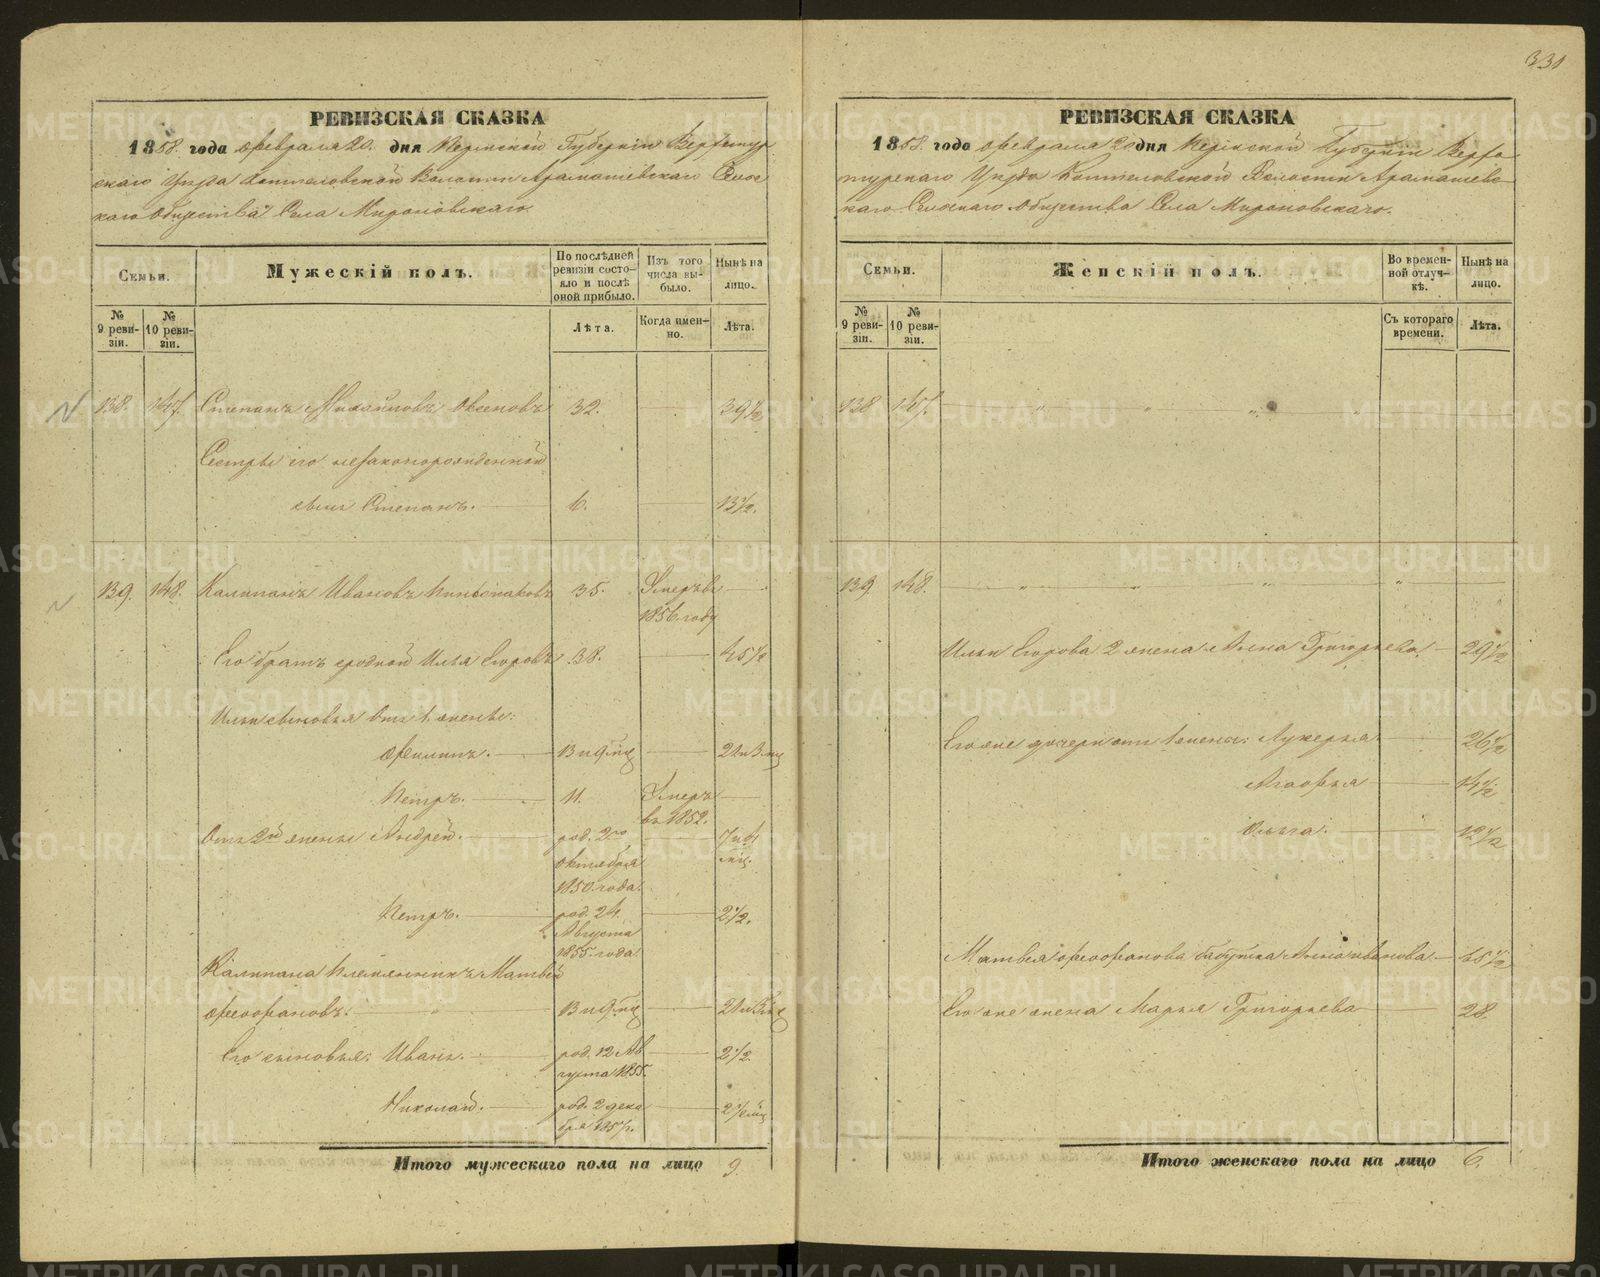 331
РЕВИЗСКАЯ СКАЗКА
1858. года Февраля 20. дня Пермской Губерніи Верхотур
скаго Уѣзда Коптеловской Волости Арамашевскаго Сельс
каго Общества Села Мироновскаго.
Семьи.
Мужескій полъ.
По послѣдней ревизіи состо-
яло и послѣ оной прибыло.
Изъ того числа вы-
было.
Нынѣ на лицо.
№ 9 реви-
зіи.
№ 10 реви-
зіи.
Лѣта.
Когда имен-
но.
Лѣта.
138. 147. Степанъ Михайловъ 32. 39 1/2
Сестры его незаконорожденный
сынъ Степанъ. 6. 13 1/2.
139. 148. Калипанъ Ивановъ 35. Умеръ въ
1856 году
Его братъ сродной Илья Егоровъ 38. 45 1/2
Ильи сыновья отъ 1 жены:
Филипъ. 13 и 9 мц 21 и 3 мц
Петръ. 11. Умеръ
въ 1852.
Отъ 2й жены Андрей. род. 2го
октября
1850 года.
7 и 4
мц.
Петръ. род. 24.
Августа
1855 года
2 1/2.
Калипана племянникъ Матвей
Феофановъ. 13 и 9 мц 21 и 3 мц
Его сыновья: Иванъ. род. 12 Ав
густа 1855.
2 1/2.
Николай. род. 2 дека
бря 1857 г.
2 1/2 мц
Итого мужескаго пола на лицо 9.
РЕВИЗСКАЯ СКАЗКА
1858. года Февраля 20 дня Пермской Губерніи Верхо
турскаго Уѣзда Коптеловской Волости Арамашевс
каго Сельскаго Общества Села Мироновскаго.
Семьи.
Женскій полъ.
Во времен-
ной отлуч-
кѣ.
Нынѣ на лицо.
№ 9 реви-
зіи.
№ 10 реви-
зіи.
Съ котораго времени.
Лѣта.
138 147.
139 148.
Ильи Егорова 2 жена Анна Григорьева 29 1/2
Его же дочери отъ 1 жены: Лукерья 26 1/2
Агафья 14 1/2
Ольга. 12 1/2
Матвея Феофанова бабушка Анна Иванова 65 1/2
Его же жена Марья Григорьева 28
Итого женскаго пола на лицо 6.